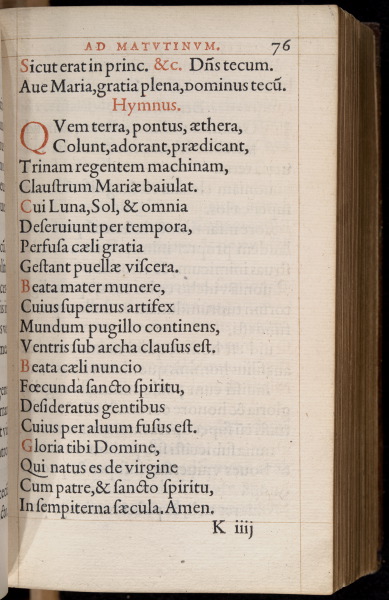 AD MATVTINVM. 76
Sicut erat in princ. &c. Dn̄s tecum.
Aue Maria, gratia plena, Dominus tecū.
Hymnus.
QVem terra, pontus, æthera,
Colunt, adorant, prædicant,
Trinam regentem machinam,
Clauſtrum Mariæ baiulat.
Cui Luna, Sol, & omnia
Deſeruiunt per tempora,
Perfuſa cæli gratia
Geſtant puellæ viſcera.
Beata mater munere,
Cuius ſupernus artifex
Mundum pugillo continens,
Ventris ſub archa clauſus eſt.
Beata cæli nuncio
Fœcunda ſancto ſpiritu,
Deſideratus gentibus
Cuius per aluum fuſus eſt.
Gloria tibi Domine,
Qui natus es de virgine
Cum patre, & ſancto ſpiritu,
In ſempiterna ſæcula. Amen.
K iiij